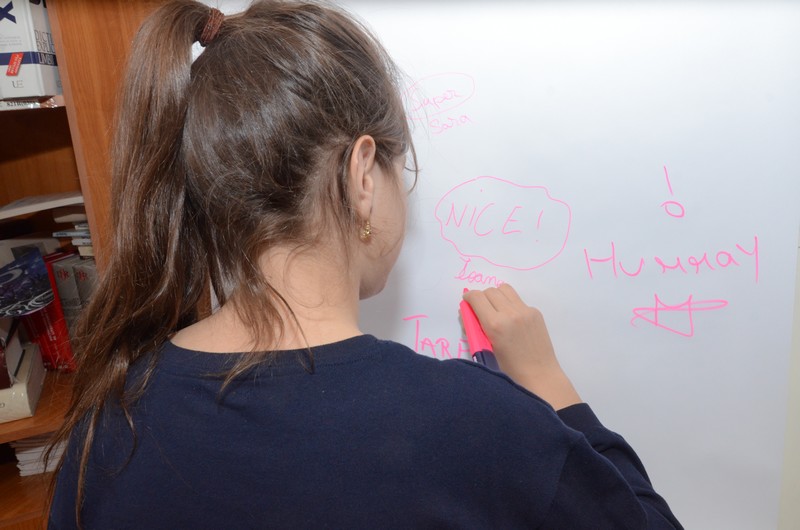 Super
Sara
NICE!
Ioan
!
HURRAY